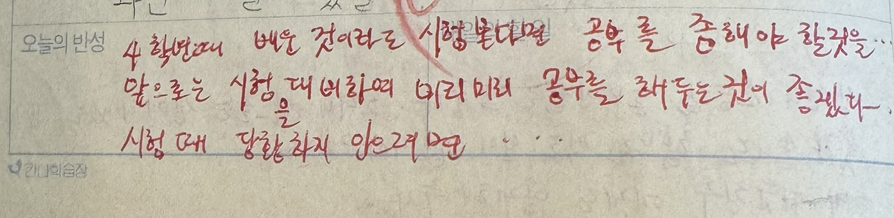 오늘의 반성
4학년때 배운 것이라도 시험 본다면 공부를 좀해야 할것을..
앞으로는 시험을 대비하여 미리미리 공부를 해 두는것이 좋겠다
시험때 당황하지 않으려면 . . .